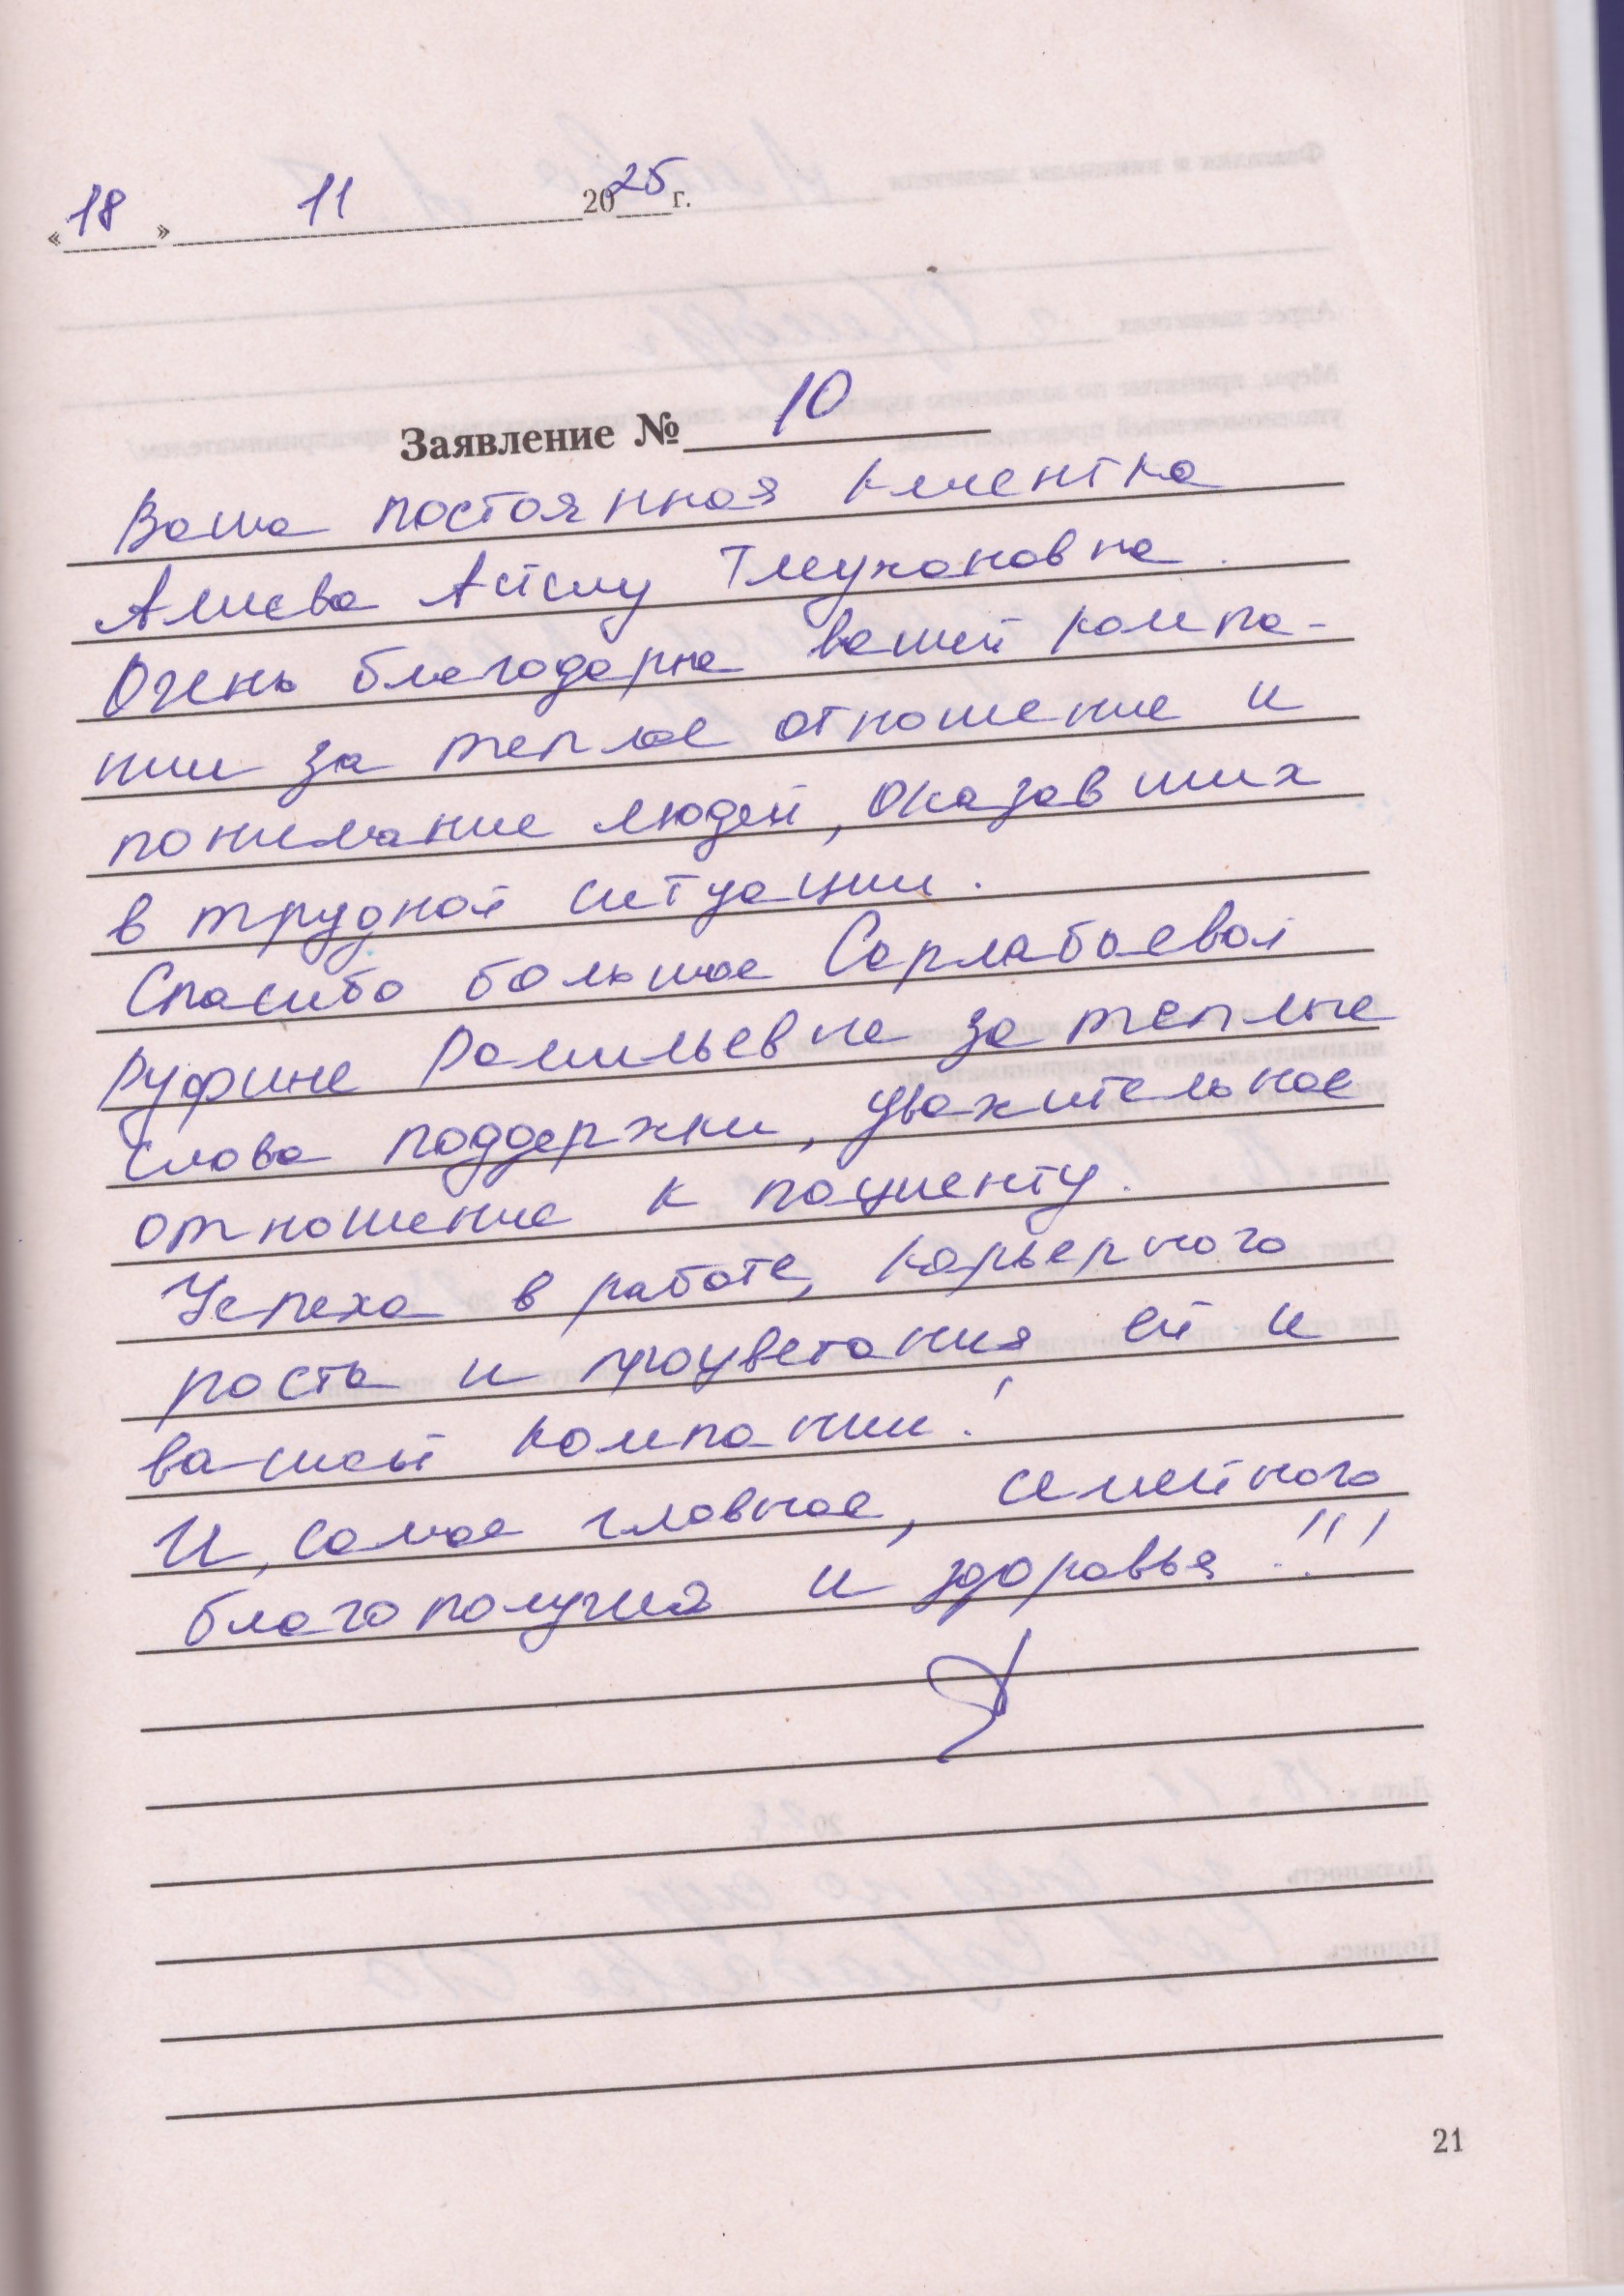 «18» 11 2025 г.
Заявление № 10
Ваша постоянная клиентка
Алиева Айслу Тмухановна.
Очень благодарна вашей компа-
нии за теплое отношение и
понимание людей, оказавших
в трудной ситуации.
Спасибо большое Сарлабаевой
Руфине Рамильевне за теплые
слова поддержки, уважительное
отношение к пациенту.
Успеха в работе, карьерного
роста и процветания ей и
вашей компании!
И, самое главное, семейного
благополучия и здоровья!!!
21